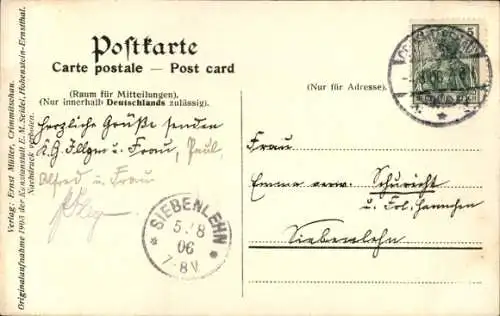 Verlag: Ernst Müller, Crimmitschau.
Originalaufnahme 1903 der Kunstanstalt E. M. Seidel, Hohenstein-Ernstthal.
Nachdruck verboten.
Postkarte
Carte postale — Post card
(Raum für Mitteilungen).
(Nur innerhalb Deutschlands zulässig).
(Nur für Adresse).
Herzliche Grüße senden
K. G. Illgen u. Frau, Paul
Alfred u. Frau
SIEBENLEHN
5. 8
06
7-8V.
5
Frau
Emma verw. Schuricht
u. Frl. Hannchen
Siebenlehn